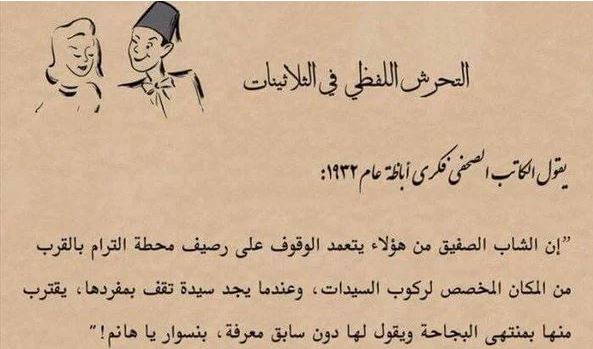 التحرش اللفظي في الثلاثينات
يقول الكاتب الصحفى فكرى أباظة عام ١٩٣٢:
"إن الشاب الصفيق من هؤلاء يتعمد الوقوف على رصيف محطة الترام بالقرب
من المكان المخصص لركوب السيدات، وعندما يجد سيدة تقف بمفردها، يقترب
منها بمنتهى البجاحة ويقول لها دون سابق معرفة، بنسوار يا هانم!"